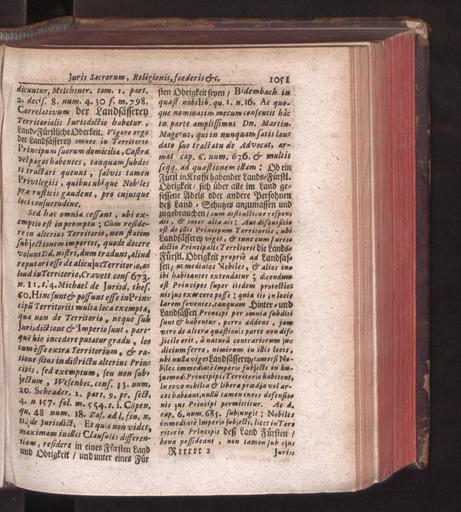 Juris Sacrorum, Religionis, foederis &c. 1051
dicuntur, Melchiner. tom. 1. part.
2. decis. 8. num. 4. 30 f. m. 798.
Correlativum der Landsässerey
Territorialis Jurisdictio habetur,
Land-Fürstliche Oberkeit. Vigore ergo
der Landsässerey omnes in Territorio
Principum suorum domicilia, Castra
vel pagos habentes, tanquam subdi-
ti tractari queunt, salvis tamen
Privilegiis, quibus ubique Nobiles
præ rusticis gaudent, pro cujusque
loci consuetudine.
Sed hæc omnia cessant, ubi ex-
emptio est in promptu: Cum reside-
re in alterius Territorio, non statim
subjectionem importet, quod e docere
volunt Dd. nostri, dum tradunt, aliud
reputari esse de alicujus Territorio, as
liud in Territorio, Cravett. cons 673.
n. 11. f. 4. Michael de Jurisd. thes.
60. Hinc sunt & possunt esse in Prin-
cipū Territoriis multa loca exempta,
qua non de Territorio, neque sub
Jurisdictione & Imperio sunt, pari-
que hic incedere putatur gradu, los
cum esse extra Territorium, & ra-
tione situs in districtu alterius Prin-
cipis, sed exemptum, seu non sub-
jectum, Wesenbec. cons. 33. num.
20. Schrader. 2. part. 9. pr. sect.
4. n 157. fol. m. 554. t. 1. Cöpen.
qu. 48 num. 18. Zas. ad l. fin. n.
11. de Jurisdict. Et quis non videt,
maximam in illis Clausulis differen-
tiam, residere in eines Fürsten Land
und Obrigkeit / und unter eines Für
sten Obrigkeit seyen / Bidembach in
quæst nobilib. qu. 1. n. 16. Ac quo-
que nominatim mecum consentit hâc
in parte amplissimus Dn. Martin.
Magerus, qui in nunquam satis lau-
dato suo tractatu de Advocat. ar-
mat cap. 6. num. 676. & multis
seqq. ad quæstionem istam: Ob ein
Fürst in Krafft habender Lands-Fürstl.
Obrigkeit / sich über alle im Land ge-
sessene Adels oder andere Persohnen
deß Land, Schutzes anzumassen und
zugebrauchen / cum distinctione respon-
dit, & inter alia ait: Aut disquisitio
est de illis Principum Territoriis, ubi
Landsässerey viget, & tunc cum Juris-
dictio Principalis Territorii die Lands-
Fürstl. Obrigkeit propriè ad Landsas-
sen, immediatos Nobiles, & alios ina
ibi habitantes extendatur; dicendum
est Principes super iisdem protectios
nis jus exercere posse; quia iis in locis
Larem foventes, tanquam Hinter- und
Landsassen Principi per omnia subditi
sunt & habentur, porrò addens, jam
vero de altera quæstionis parte non dif-
ficile erit, à naturâ contrariorum ju-
dicium ferre, nimirum in illis locis,
ubi nulla viget Landsässerey, tametsi No-
biles immediatè Imperio subjecti in hu-
jusmodi Principis is Territorio habitent,
in eo & nobilia & libera prædia vel ar-
ces habeant, nullū tamen in eos defensio-
nis jus Principi permittitur. At d.
cap. 6. num. 685. subjungit: Nobiles
immediatè Imperio subjecti, licet in Ter-
ritorio Principis deß Land Fürsten /
bona possideant, non tamen sub ejus
Rrrrrr 2 Juris